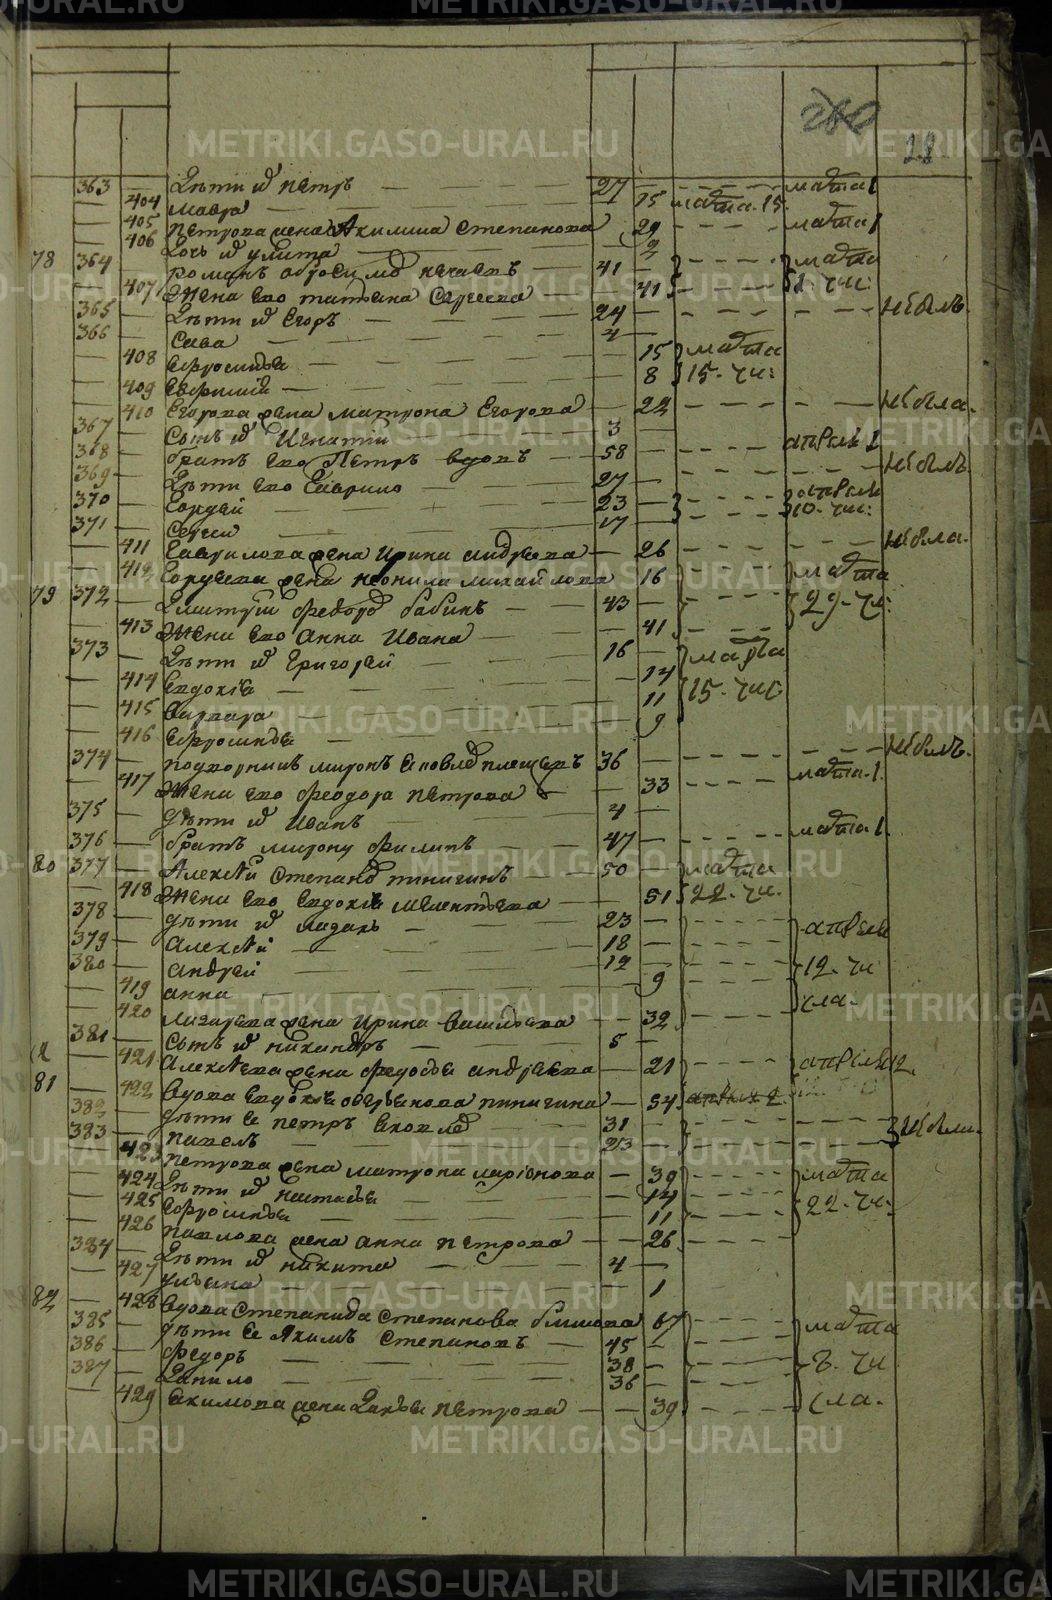 METRIKI.GASO-URAL.RU
260
28
363 — Дѣти их Петръ — 27 — марта 1
— 404 Мавра — 15 марта 15
— 405 Петрова жена Акилина Степанова 29 — марта 1
— 406 Дочь их Улита — 2
78 364 — Романъ — 41 — марта
— 407 Жена его Татьяна Сергѣева — 41 — 1 чи:
365 — Дѣти их Егоръ — 24 — небылъ.
366 — Сава — 4 —
— 408 Ефросинья — 15 марта
— 409 — 8 15. чи:
— 410 Егорова жена Матрона Егорова — 22 — небыла.
367 — Сынъ их Игнатий — 3 —
368 — братъ его Петръ вдовъ — 58 — апреля 1
369 — Дѣти его Гаврило — 27 — небылъ
370 — Гордей — 23 — апреля
371 — Сергей — 17 — 10. чи:
— 411 Гаврилова жена Ирина Андреева — 26 — небыла.
— 412 Гордеева жена Неонила Михайлова 16 — марта
79 372 — Дмитрий Федоров Бабинъ — 43 — 29. чи:
— 413 Жена его Анна Ивана — 41
373 — Дѣти их Григорей — 16 — марта
— 414 Евдокия — 14
— 415 Варвара — 11 15. чи:
— 416 Ефросинья — 9
374 — подворникъ Миронъ 36 — небылъ.
— 417 Жена его Феодора Петрова — 33 — марта. 1.
375 — дѣти их Иванъ — 4 —
376 — братъ Мирону Филипъ — 47 — марта 1.
80 377 — Алексѣй Степанов Пинигинъ — 50 — марта
— 418 Жена его Евдокия — 51 22. чи.
378 — дѣти их Лазарь — 23 — апреля
379 — Алексѣй — 18 —
380 — Андрей — 12 — 12. чи
— 419 Анна — 9 сла.
— 420 Лазарева жена Ирина — 32
381 — Сынъ их Никандръ — 5 —
— 421 Алексѣева жена Федосья Андреева — 21 — апреля 12
81 — 422 Вдова Евдокия Пинигина — 54 апреля 2
382 — дѣти ее Петръ — 31 — небыли.
383 — Павелъ — 23
— 423 Петрова жена Матрона Ларионова — 39 — марта
— 424 Дѣти их Настасья — 14
— 425 Ефросинья — 11 22. чи:
— 426 Павлова жена Анна Петрова — 26
384 — Дѣти их Никита — 4 —
— 427 Ульяна — 1
82 — 428 Вдова Степанида Степанова 67
385 — дѣти ее Якимъ Степановъ — 45 — марта
386 — Федоръ — 38 — 8. чи
387 — Данило — 36 —
— 429 Екимова жена Дарья Петрова — 39 сла.
METRIKI.GASO-URAL.RU